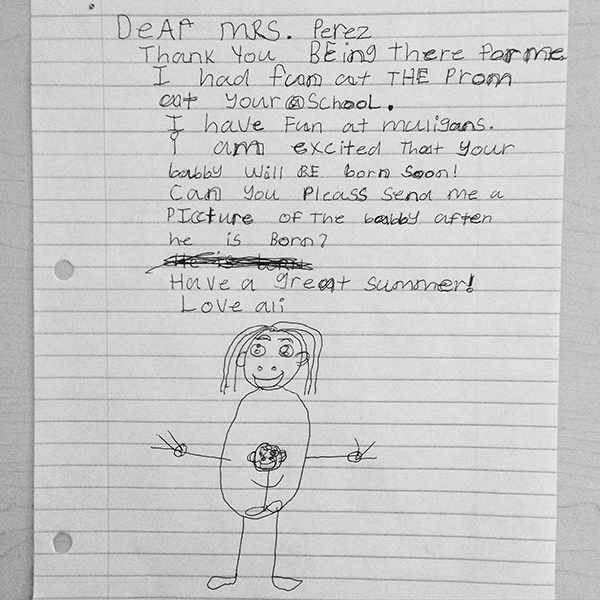 DeAr MRS. Perez
Thank You BEing there for me
I had fun at THE Prom
at your School.
I have Fun at muligans.
I am excited That your
babby Will BE born Soon!
Can you Pleass send me a
PIcture of The babby after
he is Born?
He is born
Have a great summer!
Love ali